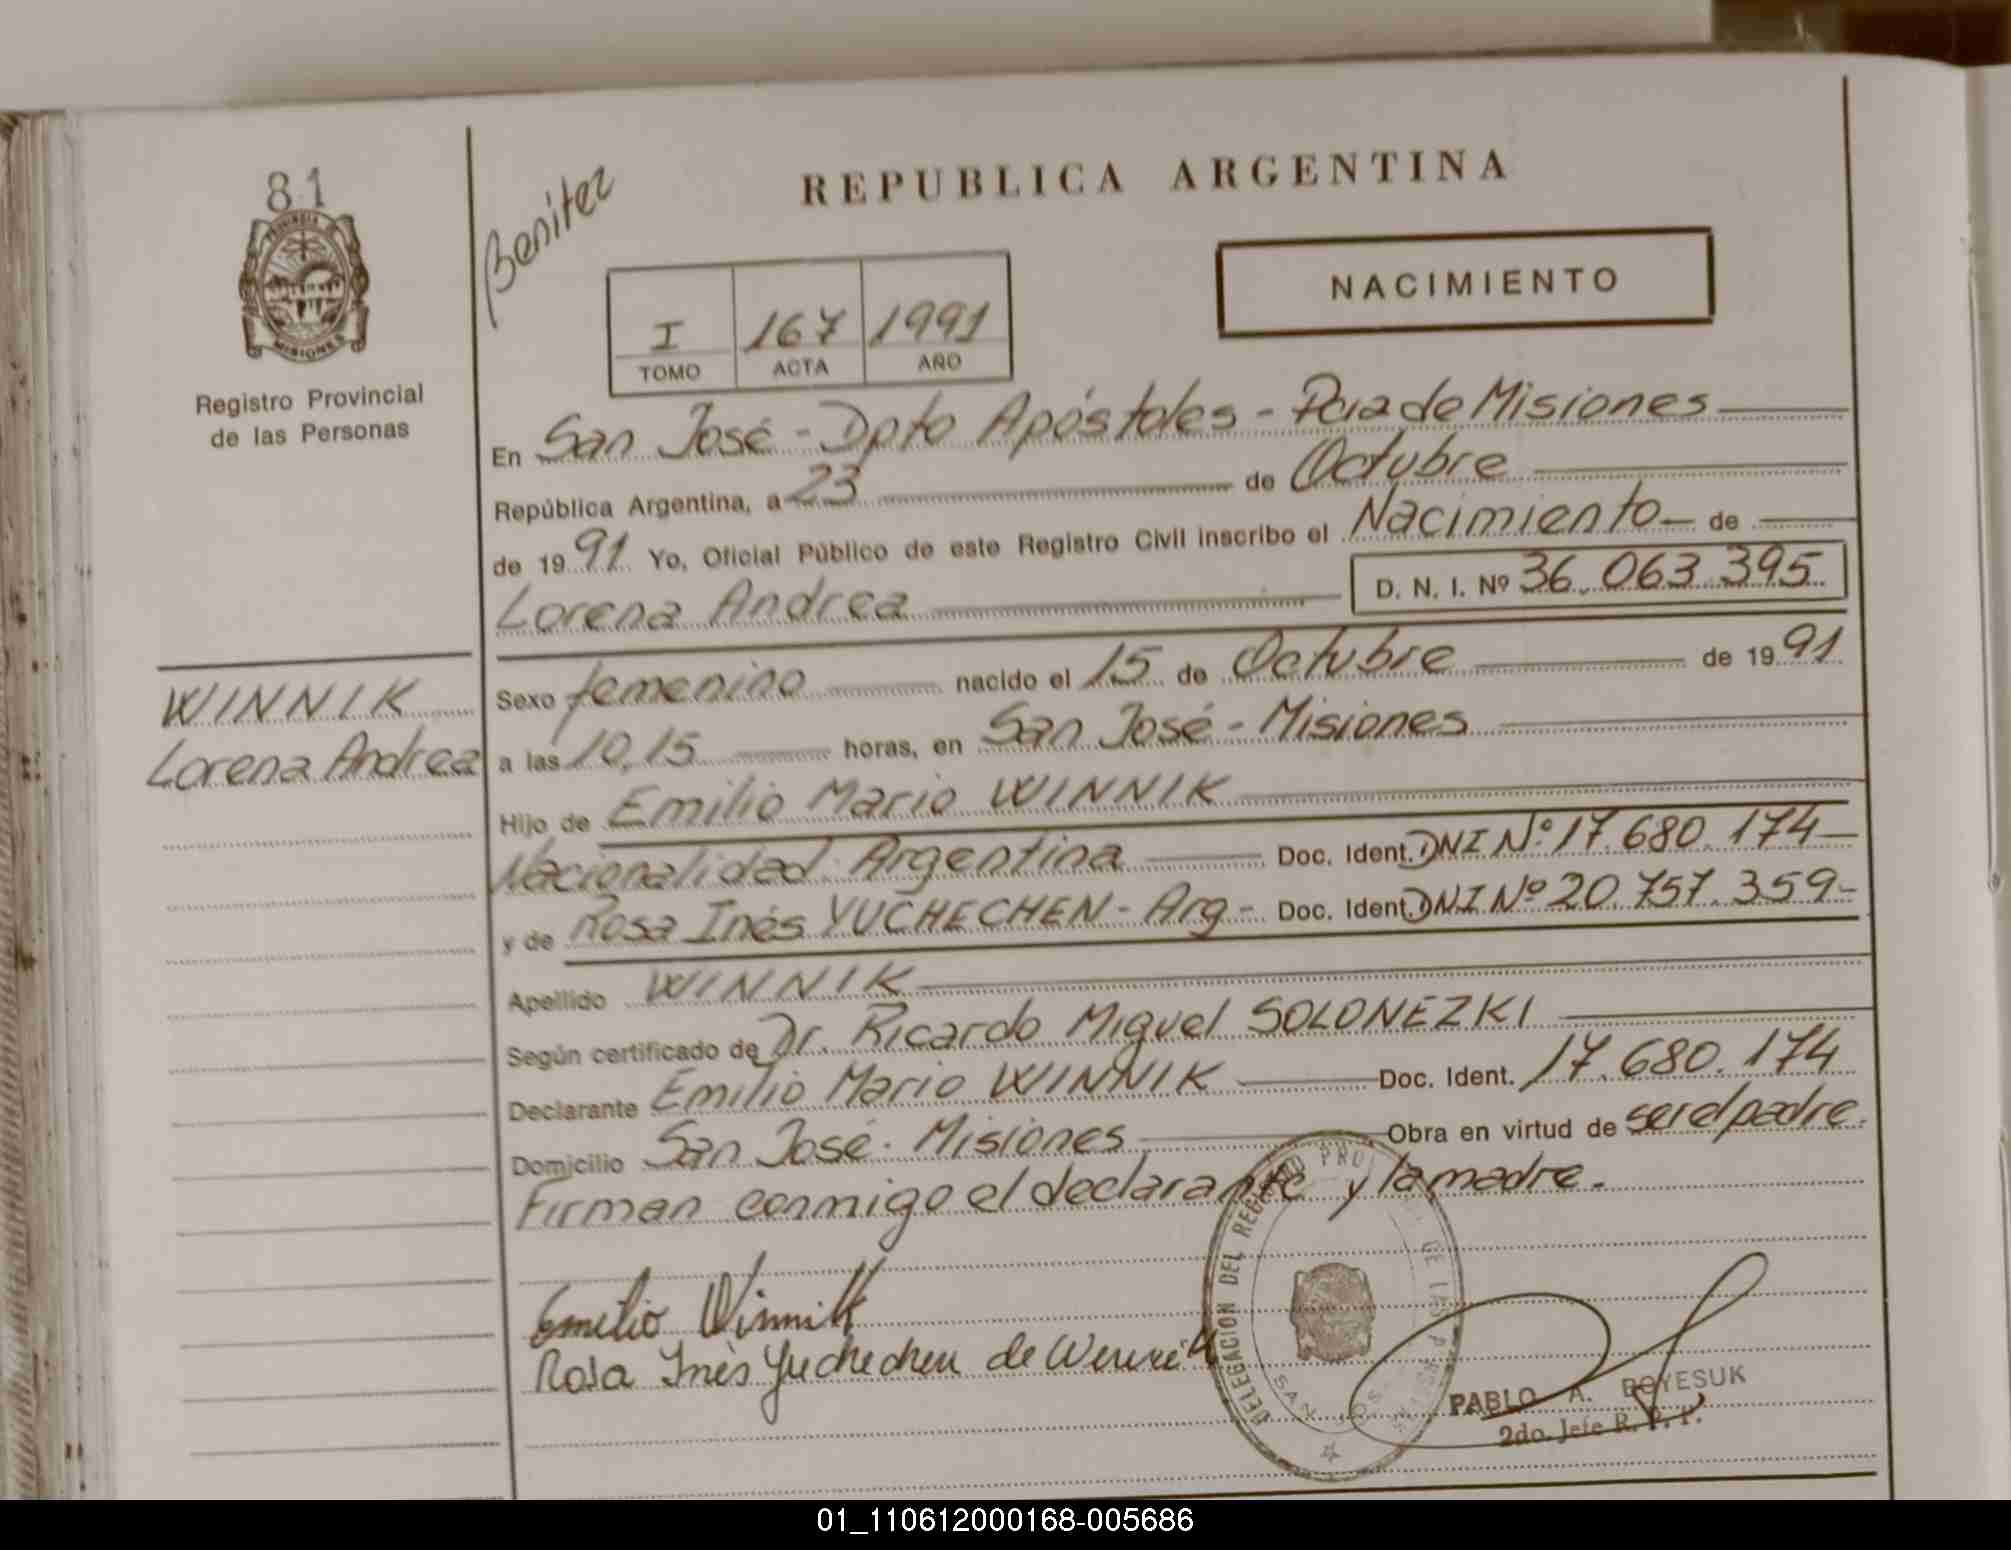 81
PROVINCIA
MISIONES
Registro Provincial
de las Personas
WINNIK
Lorena Andrea
Benitez
REPUBLICA ARGENTINA
I 167 1991
TOMO ACTA AÑO
NACIMIENTO
En San José - Dpto Apóstoles - Pcia de Misiones
República Argentina, a 23 de Octubre
de 1991 Yo, Oficial Público de este Registro Civil inscribo el Nacimiento de
Lorena Andrea D. N. I. Nº 36.063.395
Sexo femenino nacido el 15 de Octubre de 1991
a las 10,15 horas, en San José - Misiones
Hijo de Emilio Mario WINNIK
Nacionalidad Argentina Doc. Ident. DNI Nº 17.680.174
y de Rosa Inés YUCHECHEN - Arg - Doc. Ident. DNI Nº 20.757.359-
Apellido WINNIK
Según certificado de Dr. Ricardo Miguel SOLONEZKI
Declarante Emilio Mario WINNIK Doc. Ident. 17.680.174
Domicilio San José. Misiones Obra en virtud de ser el padre.
Firman conmigo el declarante y la madre.
Emilio Winnik
Rosa Inès Yuchechen de Winnik
DELEGACION DEL REGISTRO PRO DE LAS
SAN JOSE
PABLO A. BOYESUK
2do. Jefe R. P. P.
01_110612000168-005686